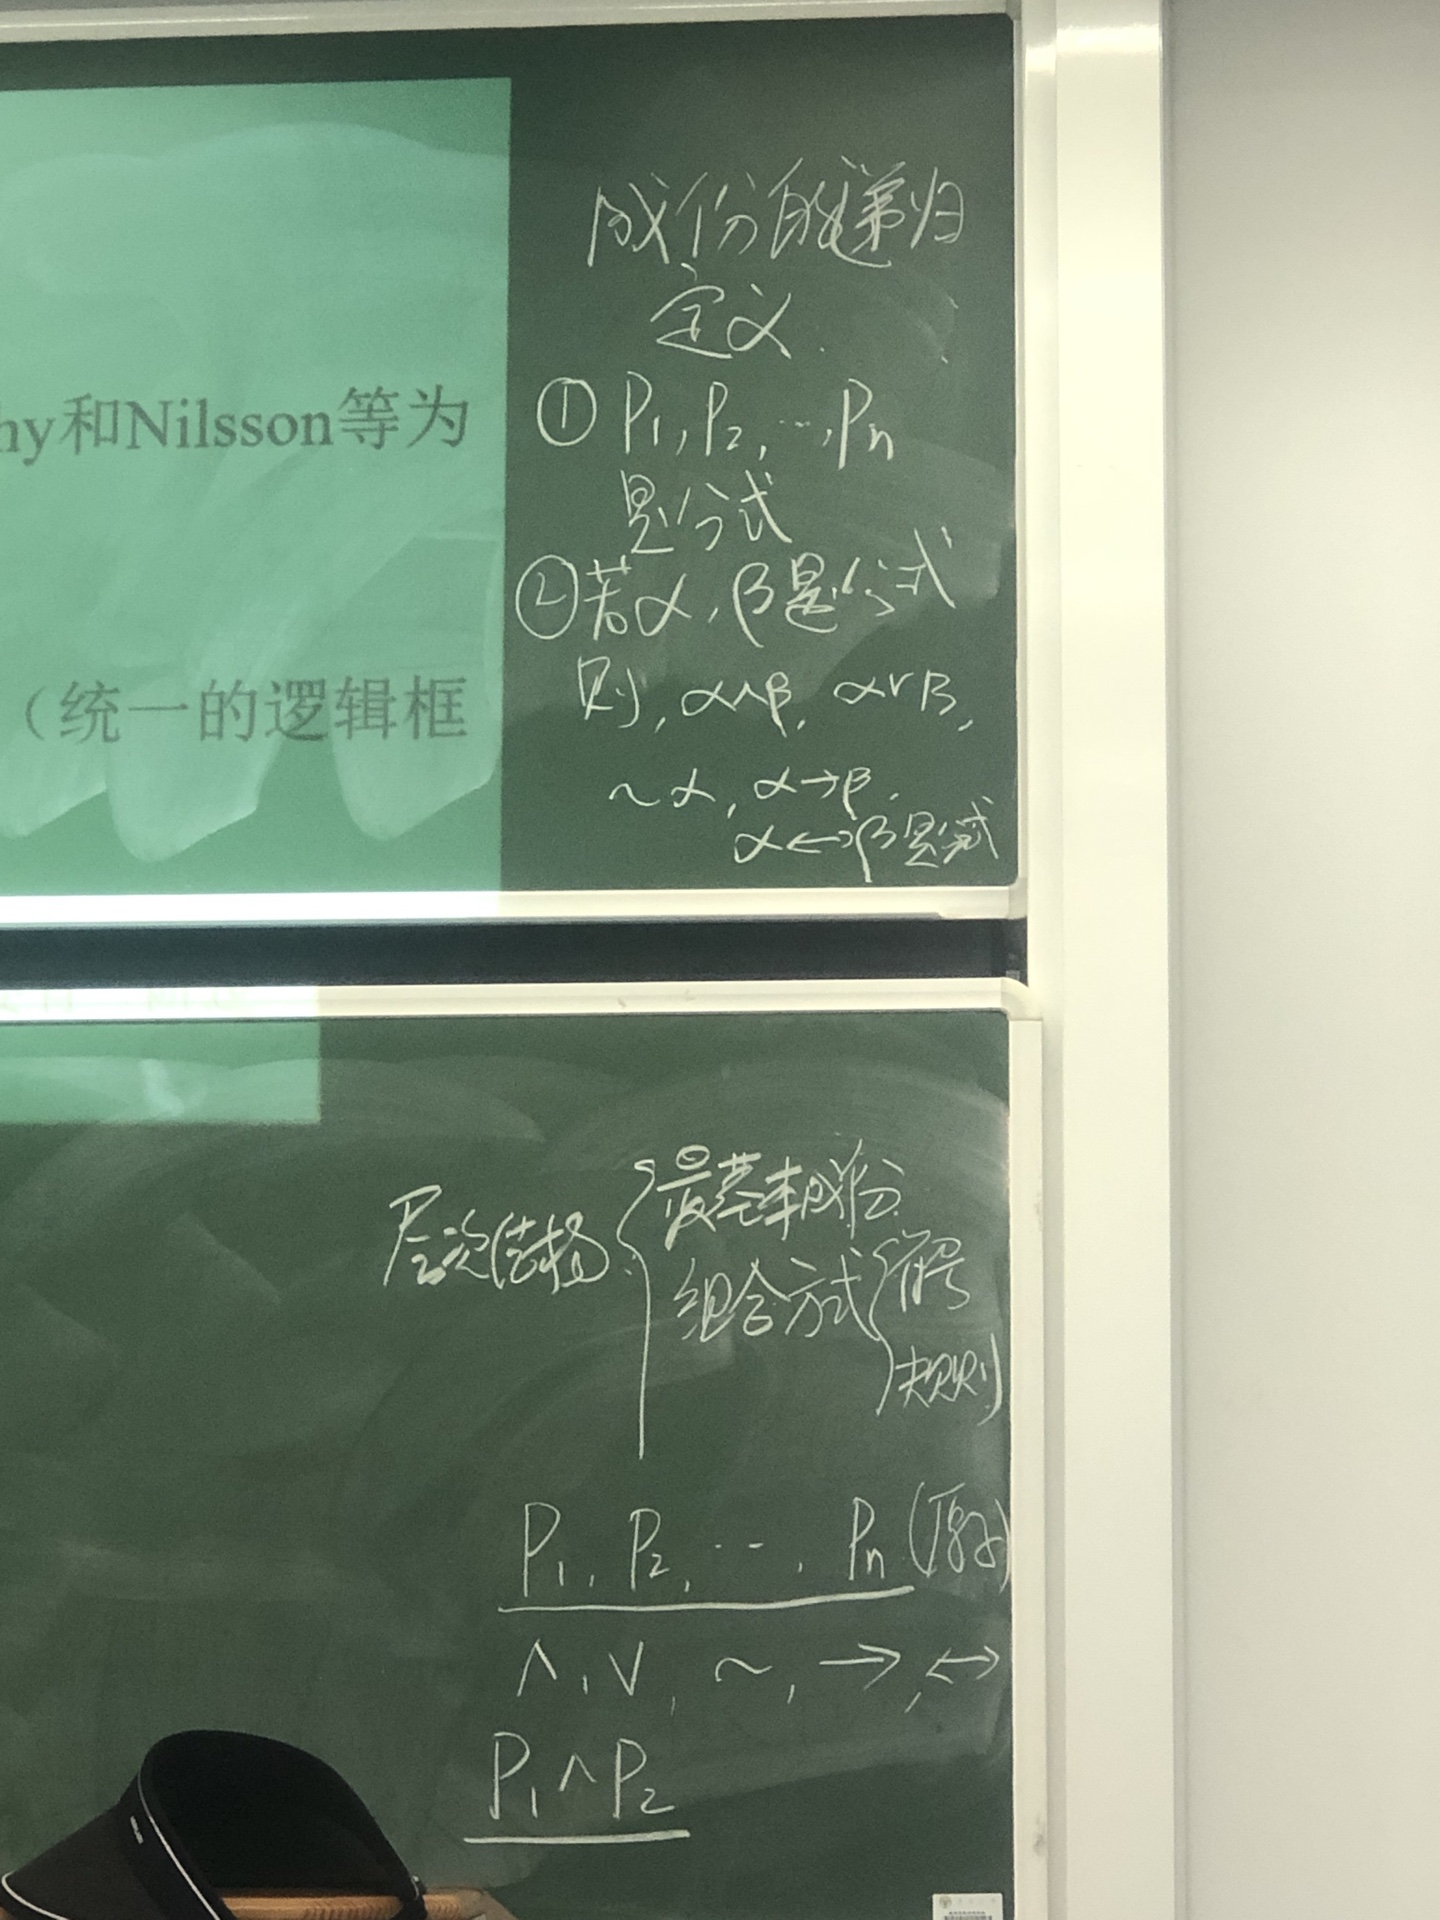 hy和Nilsson等为
（统一的逻辑框
成份的递归
定义.
① P₁, P₂, …, Pn
是公式
② 若α, β是公式
则, α∧β, α∨β,
~α, α→β,
α↔β是公式
层次结构
最基本成份
组合方式
符号
规则
P₁, P₂, …, Pn (原子)
∧, ∨, ~, →, ↔
P₁∧P₂